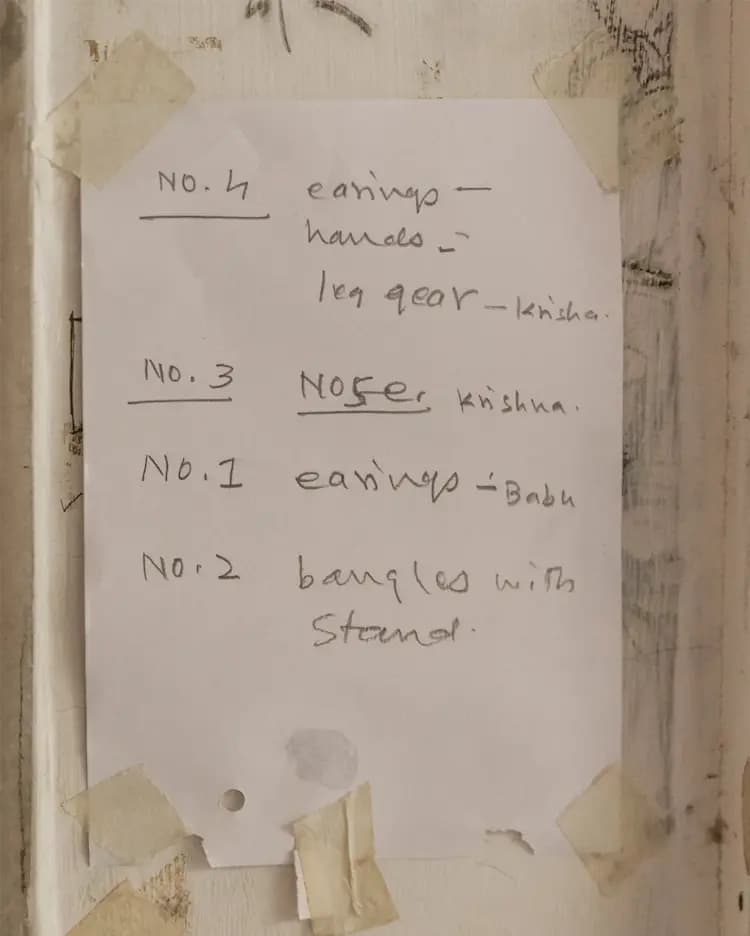 NO. 4 earings —
hands -
leg gear - Krisha.
NO. 3 NOSe. Krishna.
NO. 1 earings - Babu
NO. 2 bangles with
Stand.